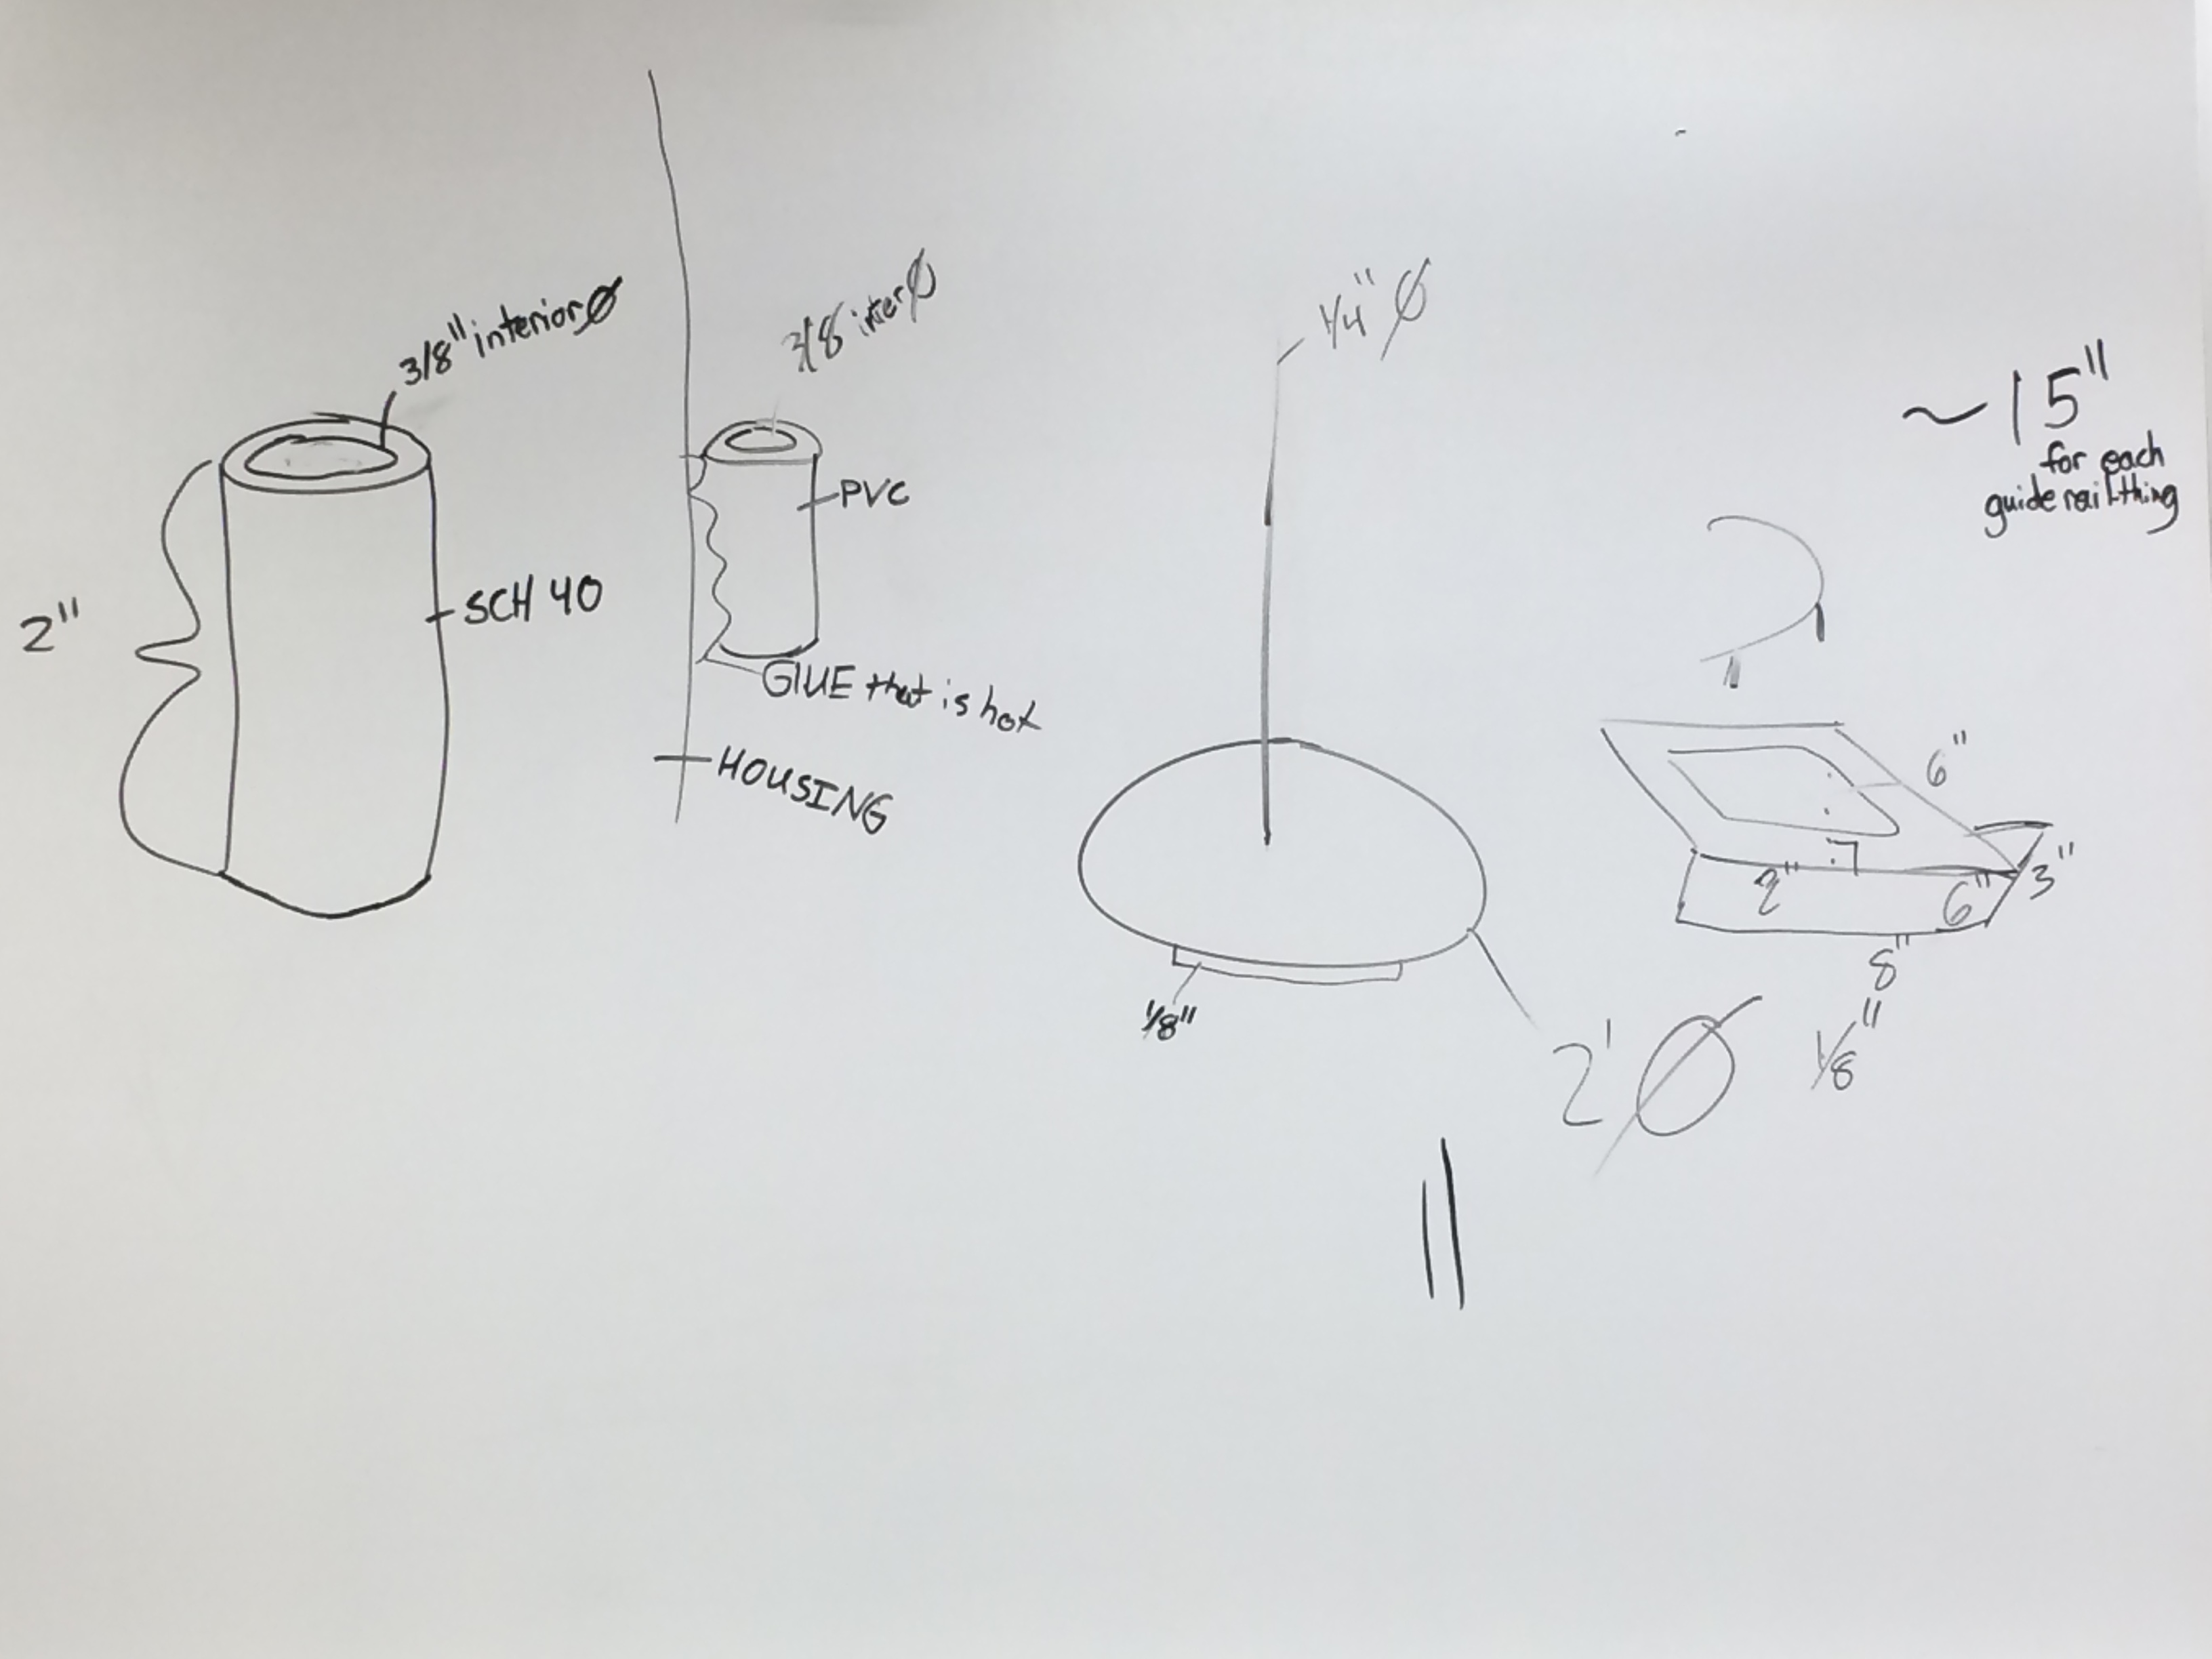 3/8" interior Ø
2"
SCH 40
3/8 inter Ø
PVC
GlUE that is hot
HOUSING
1/4" Ø
1/8"
2' Ø
~15"
for each
guide rail-thing
6"
2"
6"
3"
8"
1/8"